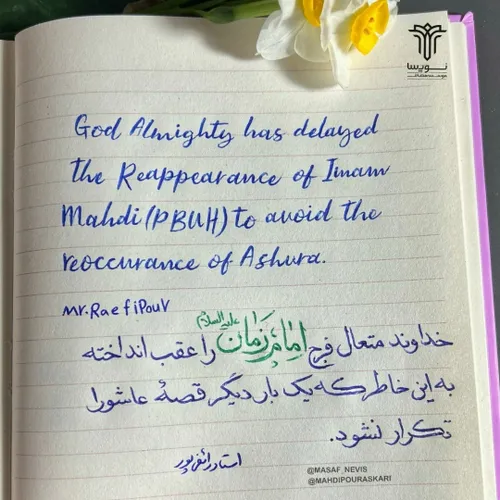 نویسا
God Almighty has delayed
the Reappearance of Imam
Mahdi (PBUH) to avoid the
reoccurance of Ashura.
mr.Raefipour
خداوند متعال فرج امام زمان علیه‌السلام را عقب انداخته
به این خاطر که یک بار دیگر قصهٔ عاشورا
تکرار نشود.
استاد رائفی‌پور
@MASAF_NEVIS
@MAHDIPOURASKARI